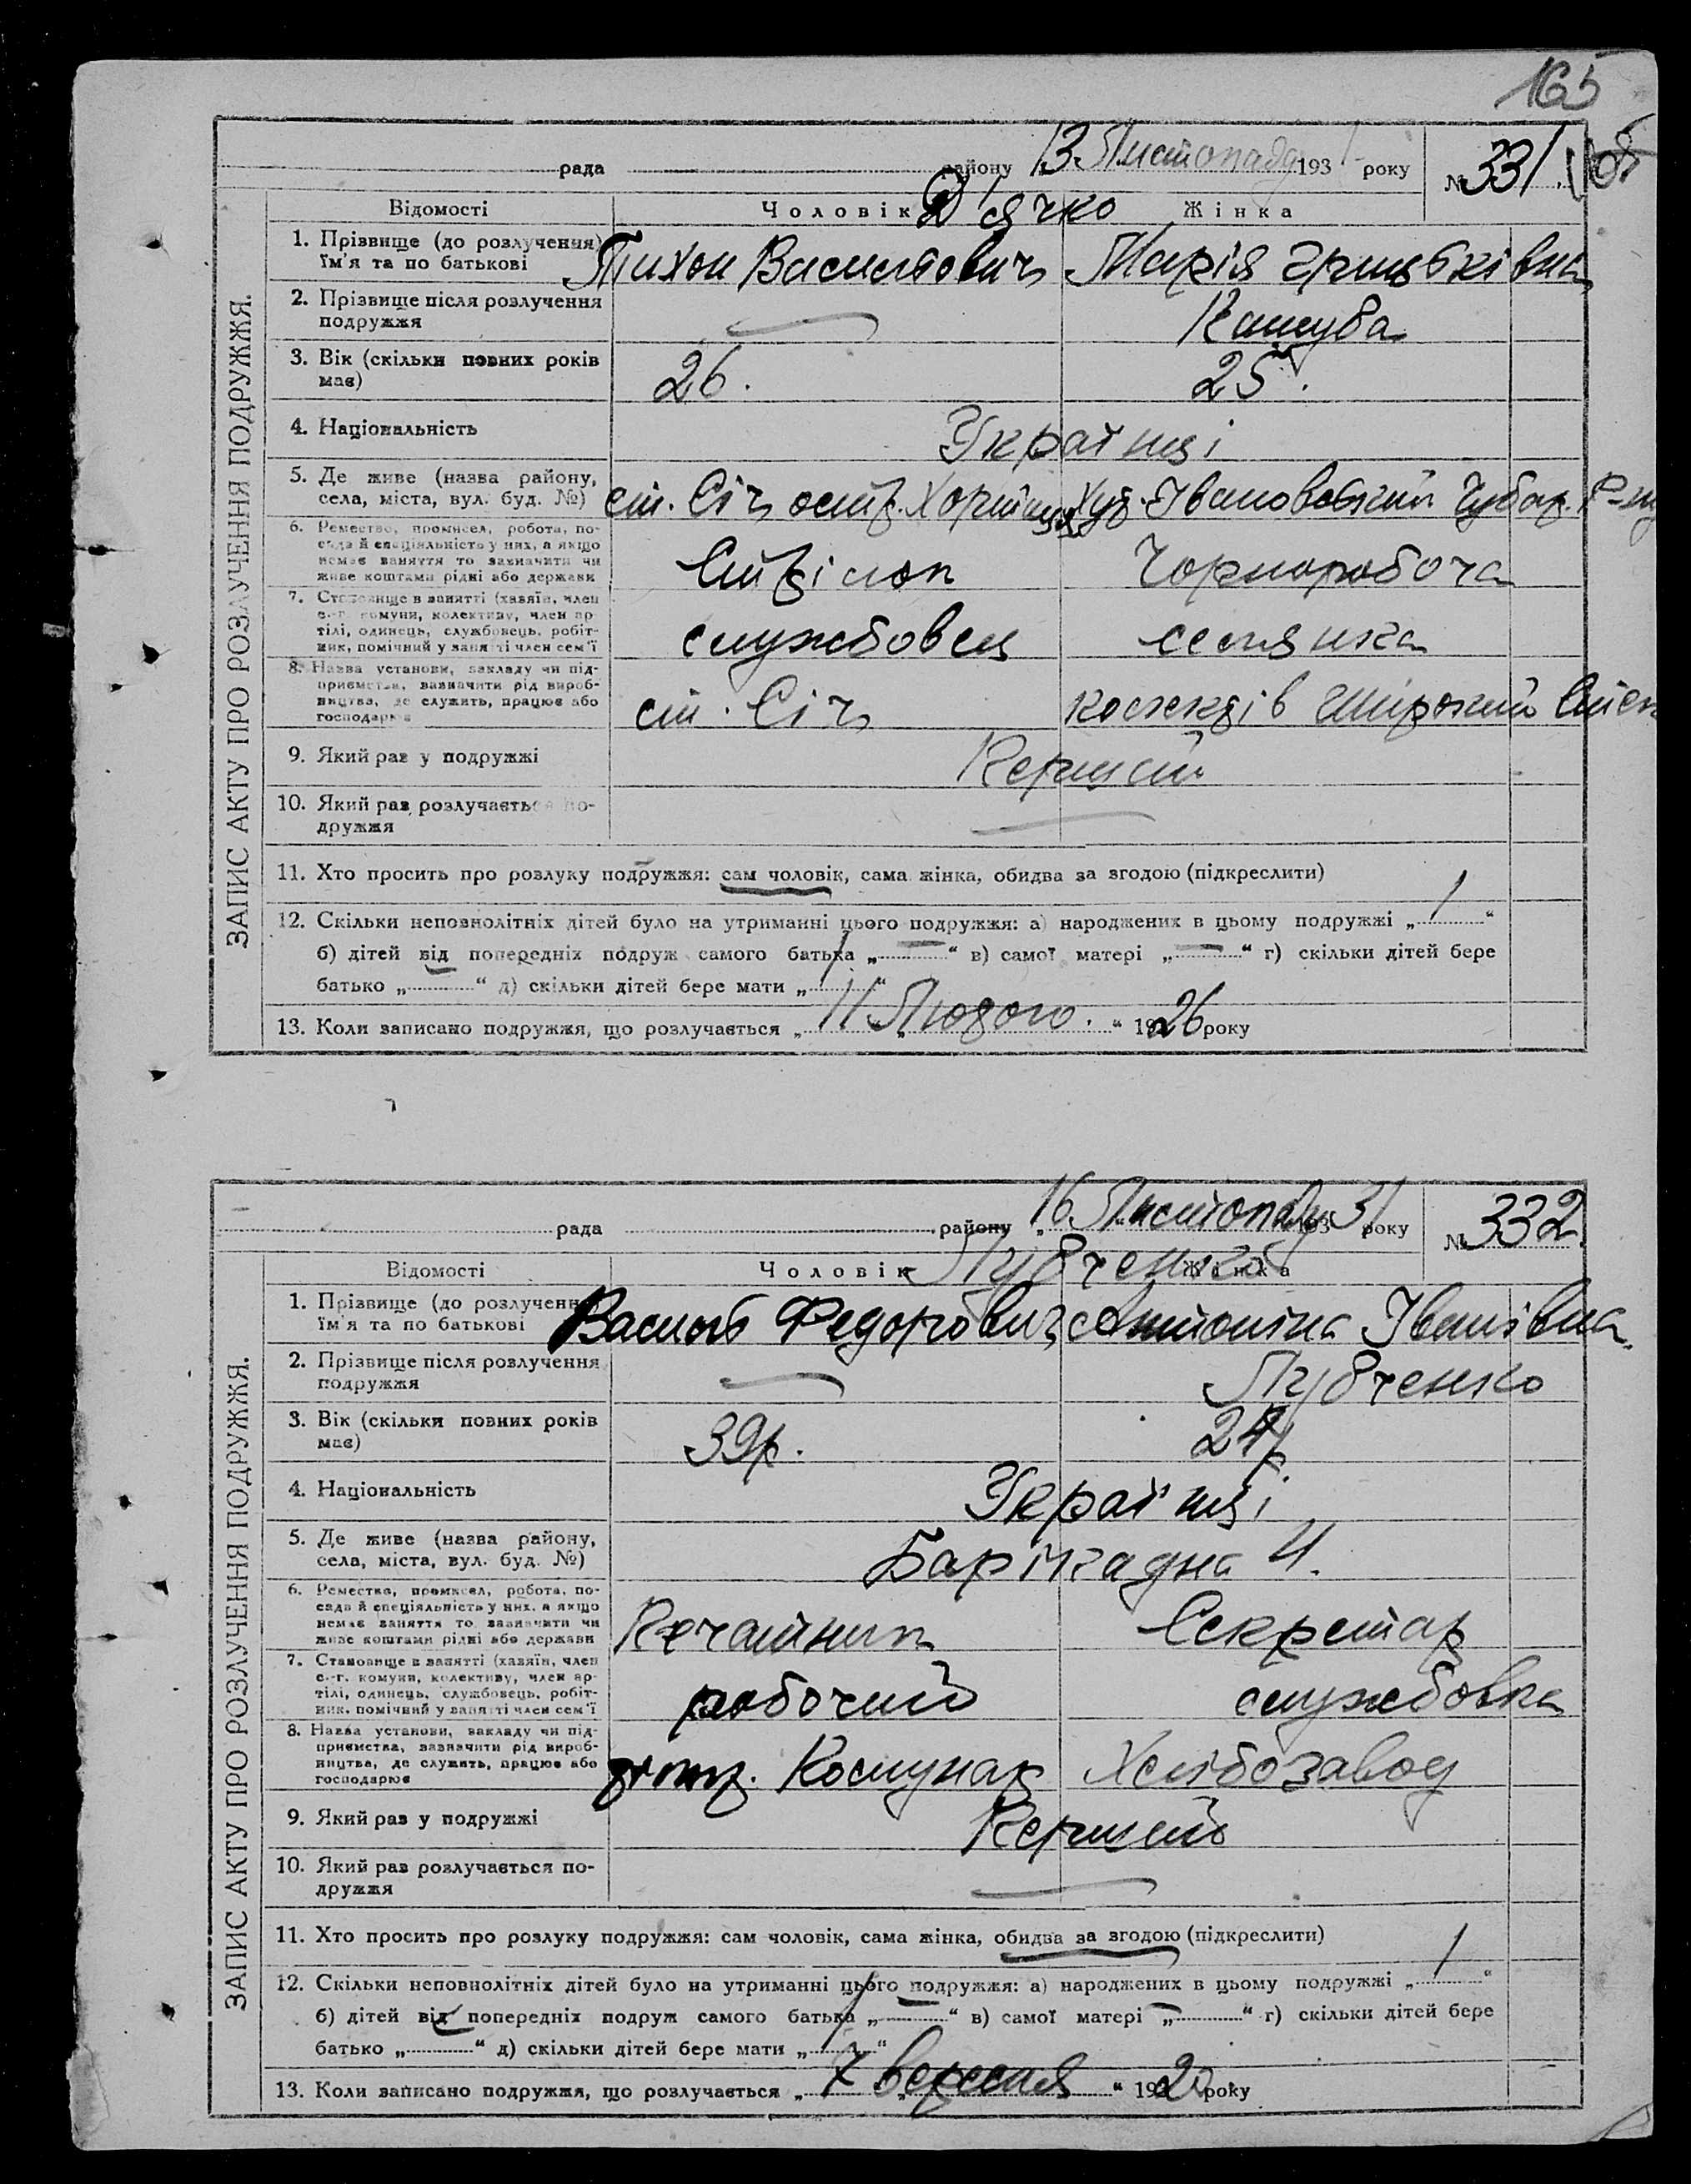 165
рада району 13 Листопада 1931 року № 331
Відомості Чоловік Дʼячко Жінка
1. Прізвище (до розлучення) їм'я та по батькові Тихон Васильович Марія Грицьківна
2. Прізвище після розлучення подружжя — Кашуба
3. Вік (скільки повних років має) 26. 25.
4. Національність Українці
5. Де живе (назва району, села, міста, вул. буд. №) ст. Січ остр. Хортиця Хут. Івановський Чубар. р-ну
6. Ремество, промисел, робота, по-
сада й спеціяльність у них, а якщо
немає заняття то зазначити чи
живе коштами рідні або держави Стрілок Чорноробоча
7. Становище в занятті (хазяїн, член
с.-г. комуни, колективу, член ар-
тілі, одинець, службовець, робіт-
ник, помічний у занятті член сем'ї службовец селянка
8. Назва установи, закладу чи під-
приємства, зазначити рід вироб-
ництва, де служить, працює або
господарює ст. Січ колгосп Широкий Степ
9. Який раз у подружжі Перший
10. Який раз розлучається по-
дружжя —
11. Хто просить про розлуку подружжя: сам чоловік, сама жінка, обидва за згодою (підкреслити)
12. Скільки неповнолітніх дітей було на утриманні цього подружжя: а) народжених в цьому подружжі „ 1 “
б) дітей від попередніх подруж самого батька „ — “ в) самої матері „ — “ г) скільки дітей бере
батько „ — “ д) скільки дітей бере мати „ 1 “
13. Коли записано подружжя, що розлучається „ 11 Лютого. “ 1926 року
ЗАПИС АКТУ ПРО РОЗЛУЧЕННЯ ПОДРУЖЖЯ.
рада району „ 16 Листопада 1931 року № 332
Відомості Чоловік Жінка
1. Прізвище (до розлучення) їм'я та по батькові Василь Федорович Антоніна Іванівна
2. Прізвище після розлучення подружжя — Лубченко
3. Вік (скільки повних років має) 39р. 24р.
4. Національність Українці
5. Де живе (назва району, села, міста, вул. буд. №) Барікадна 4.
6. Ремество, промисел, робота, по-
сада й спеціяльність у них, а якщо
немає заняття то зазначити чи
живе коштами рідні або держави Печатник Секретар
7. Становище в занятті (хазяїн, член
с.-г. комуни, колективу, член ар-
тілі, одинець, службовець, робіт-
ник, помічний у занятті член сем'ї робочий службовка
8. Назва установи, закладу чи під-
приємства, зазначити рід вироб-
ництва, де служить, працює або
господарює Комунар Хлібозавод
9. Який раз у подружжі Перший
10. Який раз розлучається по-
дружжя —
11. Хто просить про розлуку подружжя: сам чоловік, сама жінка, обидва за згодою (підкреслити)
12. Скільки неповнолітніх дітей було на утриманні цього подружжя: а) народжених в цьому подружжі „ 1 “
б) дітей від попередніх подруж самого батька „ — “ в) самої матері „ — “ г) скільки дітей бере
батько „ — “ д) скільки дітей бере мати „ 1 “
13. Коли записано подружжя, що розлучається „ 7 вересня “ 192 року
ЗАПИС АКТУ ПРО РОЗЛУЧЕННЯ ПОДРУЖЖЯ.